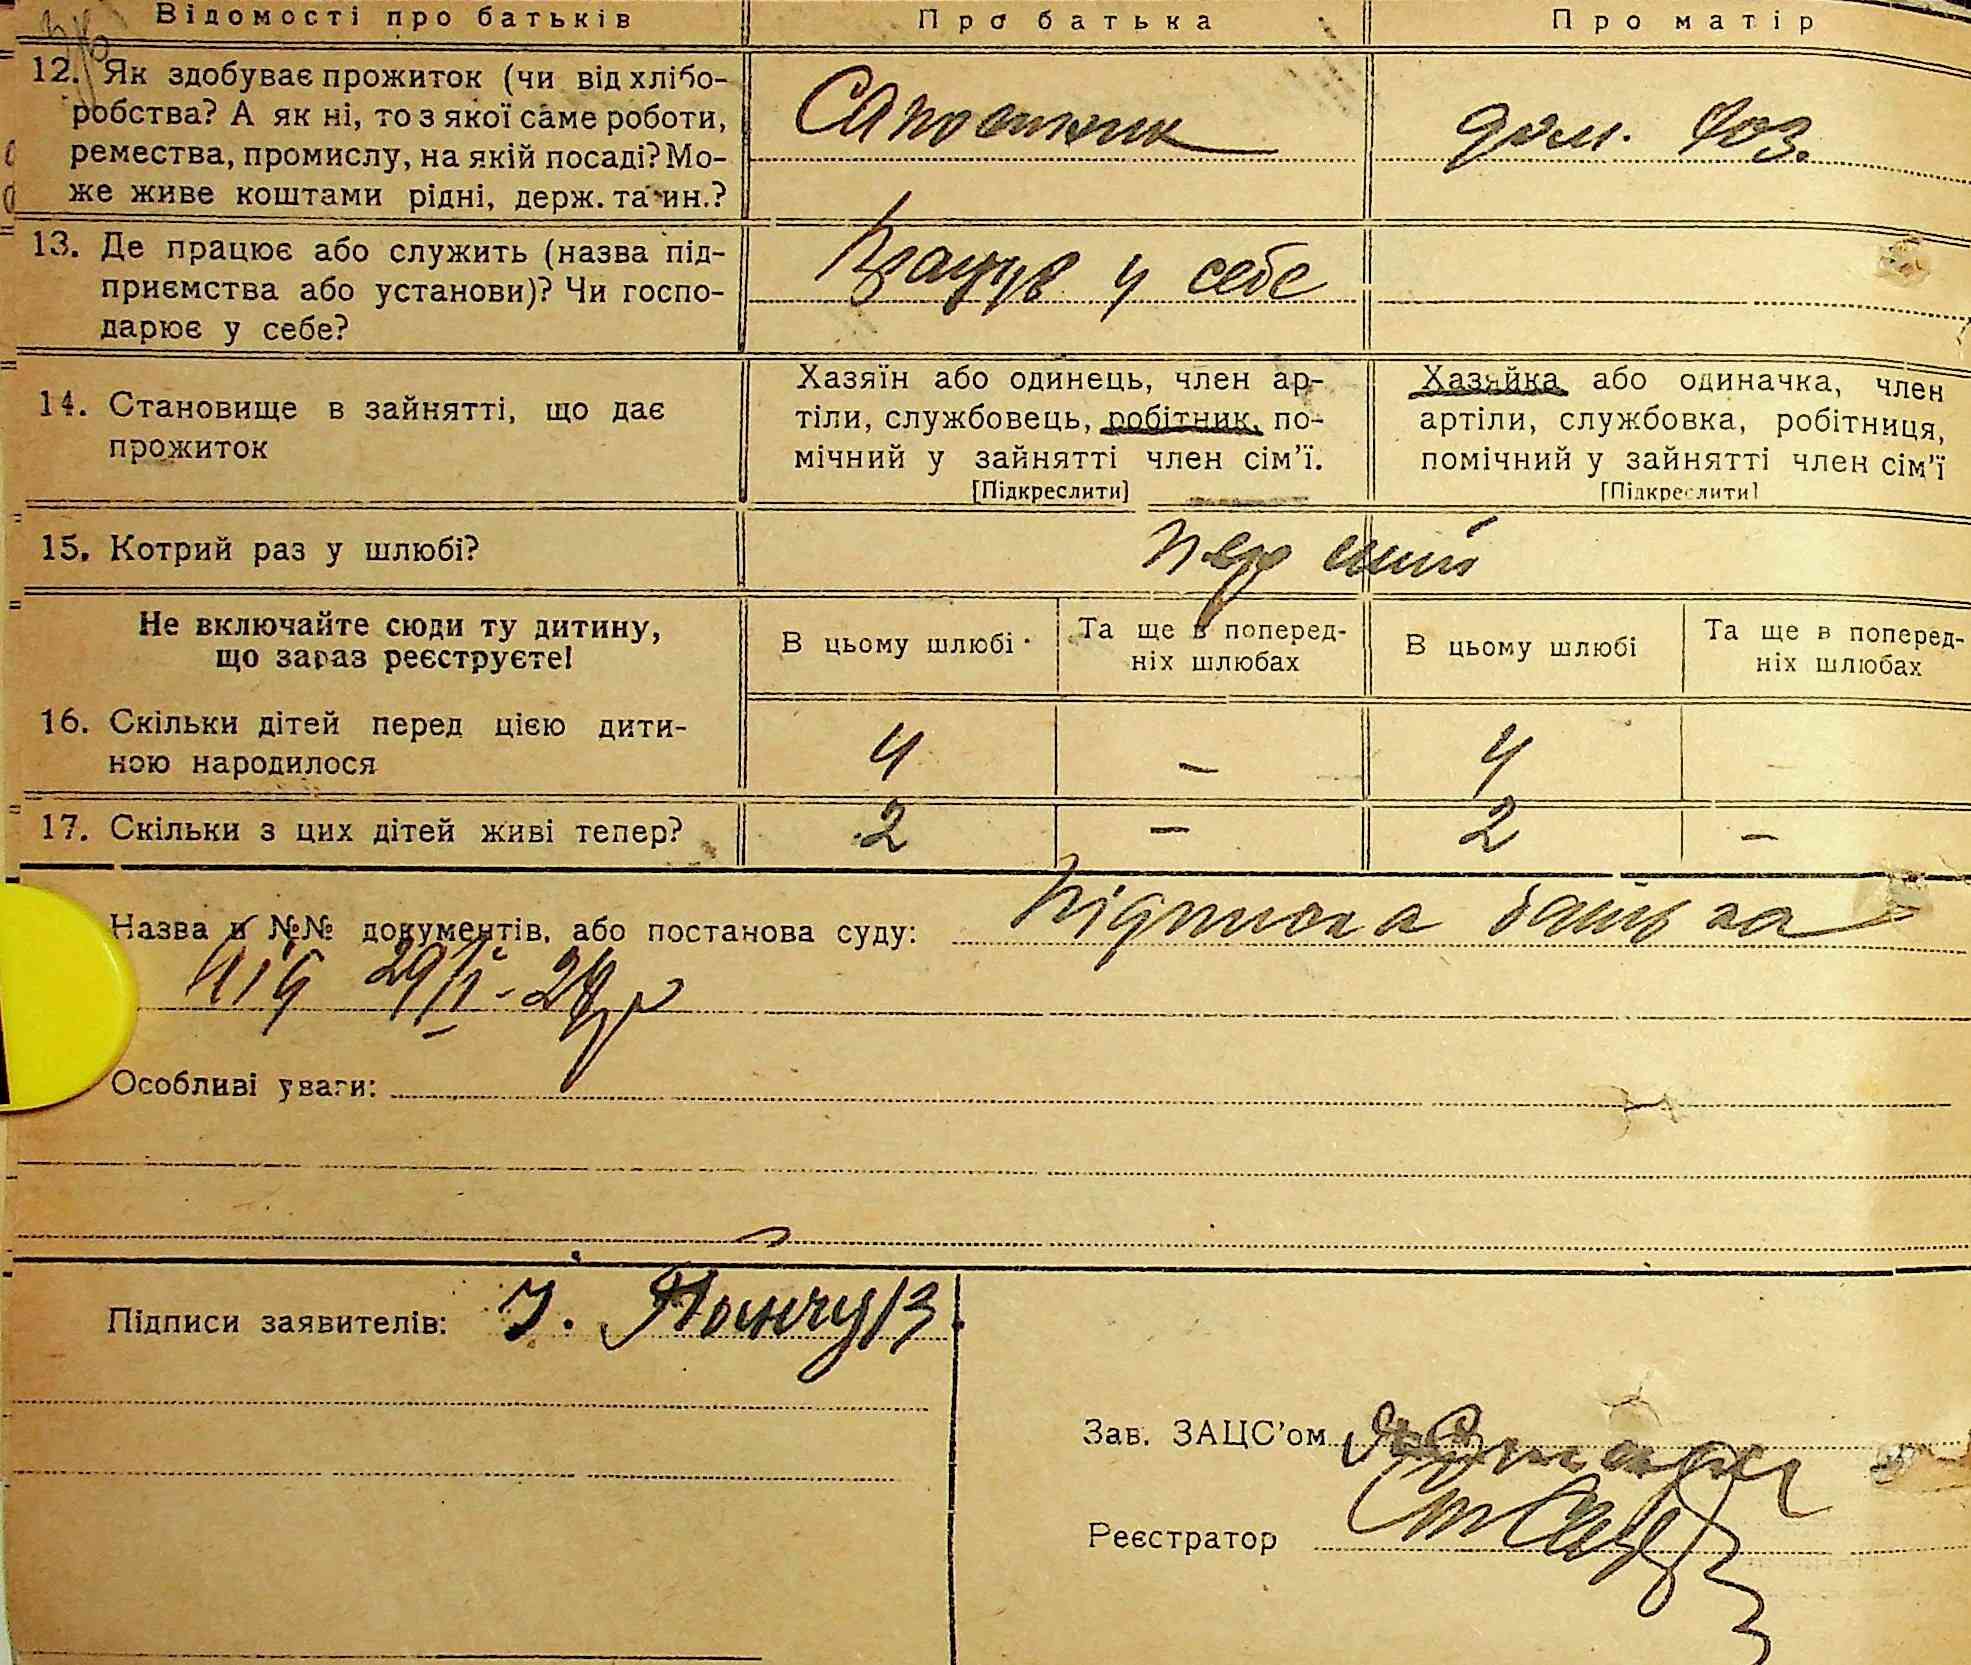 Відомості про батьків Про батька Про матір
12. Як здобуває прожиток (чи від хлібо-
робства? А як ні, то з якої саме роботи,
ремества, промислу, на якій посаді? Мо-
же живе коштами рідні, держ. та ин.?
дом. хоз.
13. Де працює або служить (назва під-
приємства або установи)? Чи госпо-
дарює у себе?
Працує у себе
14. Становище в зайнятті, що дає
прожиток
Хазяїн або одинець, член ар-
тіли, службовець, робітник, по-
мічний у зайнятті член сім’ї.
[Підкреслити]
Хазяйка або одиначка, член
артіли, службовка, робітниця,
помічний у зайнятті член сім’ї
[Підкреслити]
15. Котрий раз у шлюбі?
перший
Не включайте сюди ту дитину,
що зараз реєструєте!
В цьому шлюбі
Та ще в поперед-
ніх шлюбах
В цьому шлюбі
Та ще в поперед-
ніх шлюбах
16. Скільки дітей перед цією дити-
ною народилося
4 – 4
17. Скільки з цих дітей живі тепер?
2 – 2 –
Назва й №№ документів, або постанова суду: Підписка батька
від
Особливі уваги:
Підписи заявителів:
Зав. ЗАЦС’ом
Реєстратор